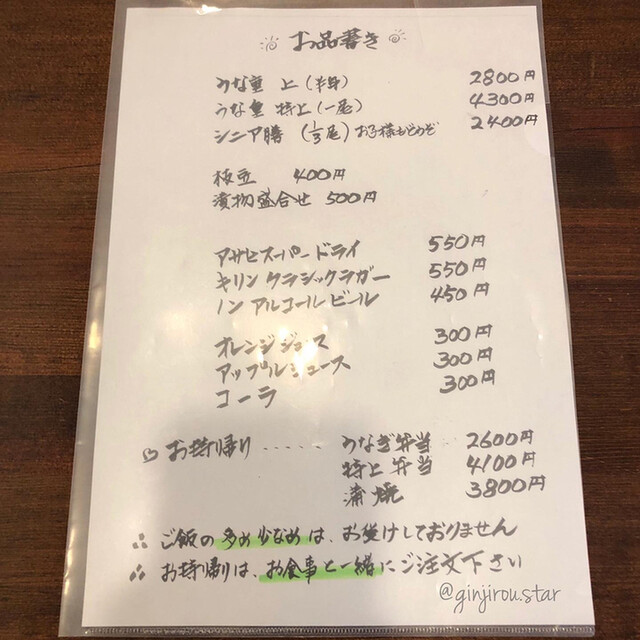 お品書き
うな重 上 (半身) 2800円
うな重 特上 (一尾) 4300円
シニア膳 (1/3尾) お子様もどうぞ 2400円
枝豆 400円
漬物盛合せ 500円
アサヒスーパードライ 550円
キリンクラシックラガー 550円
ノンアルコールビール 450円
オレンジジュース 300円
アップルジュース 300円
コーラ 300円
お持帰り ..... うなぎ弁当 2600円
特上弁当 4100円
蒲焼 3800円
ご飯の多め少なめは、お受けしておりません
お持帰りは、お食事と一緒にご注文下さい
@ginjirou.star